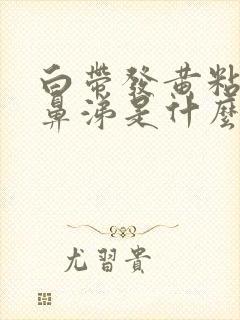 白帶發黄粘
鼻涕是什麼
尤習貴